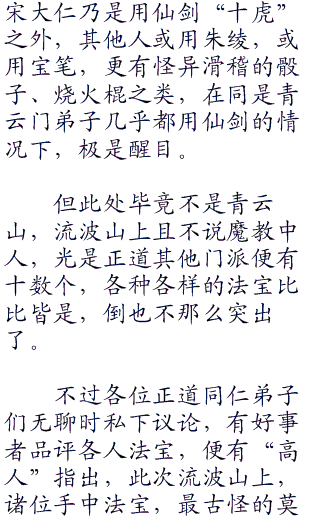 宋大仁乃是用仙剑“十虎”
之外，其他人或用朱绫，或
用宝笔，更有怪异滑稽的骰
子、烧火棍之类，在同是青
云门弟子几乎都用仙剑的情
况下，极是醒目。
但此处毕竟不是青云
山，流波山上且不说魔教中
人，光是正道其他门派便有
十数个，各种各样的法宝比
比皆是，倒也不那么突出
了。
不过各位正道同仁弟子
们无聊时私下议论，有好事
者品评各人法宝，便有“高
人”指出，此次流波山上，
诸位手中法宝，最古怪的莫